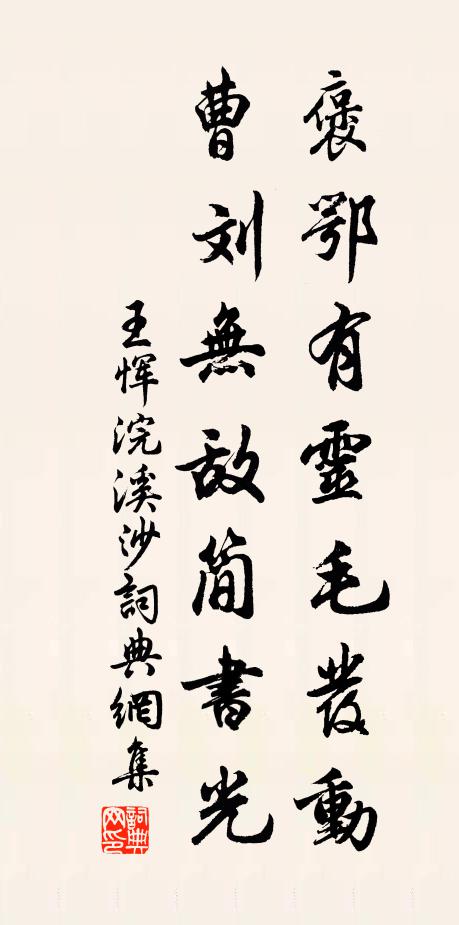 褒鄂有靈毛發動
曹刘無敌简書光
王恽浣溪沙詞典網集
詞典網印